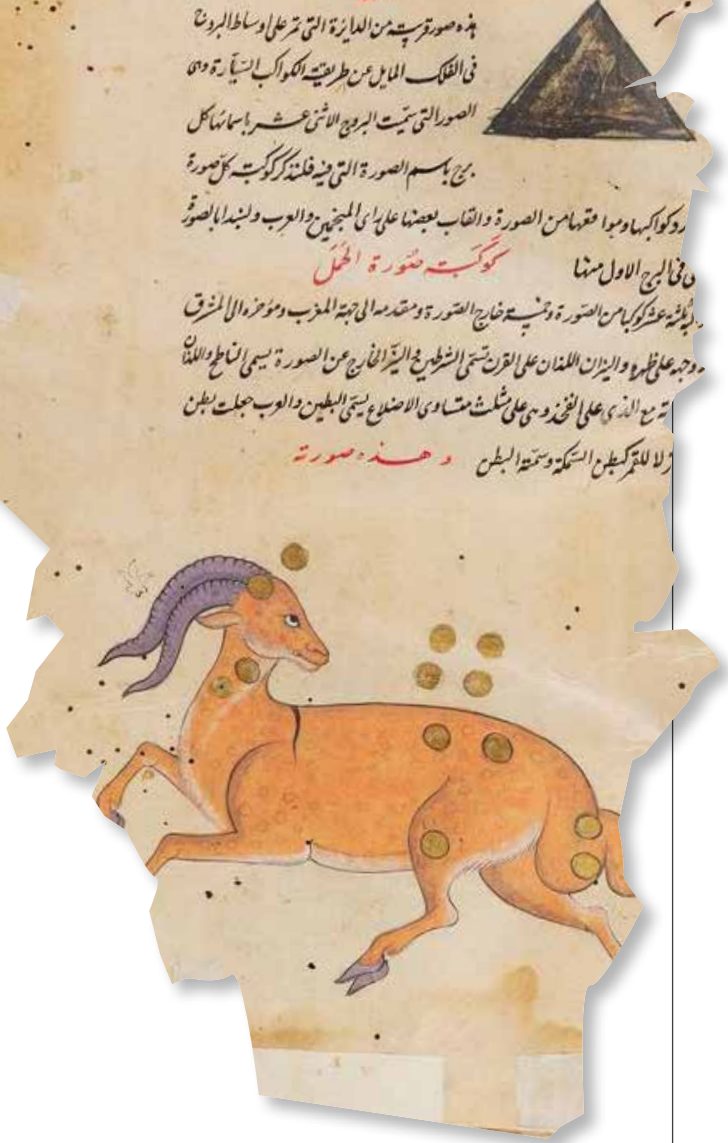 هذه صور قريبة من الدايرة التى تمر على اوساط البروج
فى الفلك المايل عن طريقة الكواكب السيارة وهى
الصور التى سميت البروج الاثنى عشر باسمائها كل
برج باسم الصورة التى فيه فلنذكر كوكبة كل صورة
وكواكبها ومواقعها من الصورة والقاب بعضها على راى المنجمين والعرب ولنبدا بالصورة
فى البرج الاول منها كوكبة صورة الحمل
ثلثة عشر كوكبا من الصورة وخمسة خارج الصورة ومقدمه الى جهة المغرب ومؤخره الى المشرق
ووجهه على ظهره والنيران اللذان على القرن تسمى الشرطين والنير الخارج عن الصورة يسمى الناطح واللذان
مع الذى على الفخذ وهى على مثلث متساوى الاضلاع يسمى البطين والعرب جعلت بطن
للقمر كبطن السمكة وسمته البطن وهذه صورته